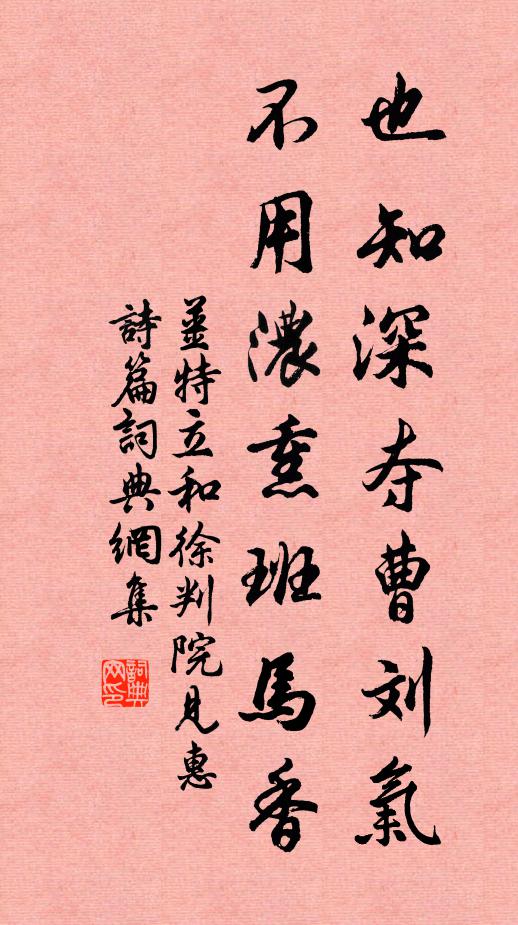 也知深夺曹刘氣
不用濃熏班馬香
姜特立和徐判院見惠
詩篇詞典網集
詞典网印